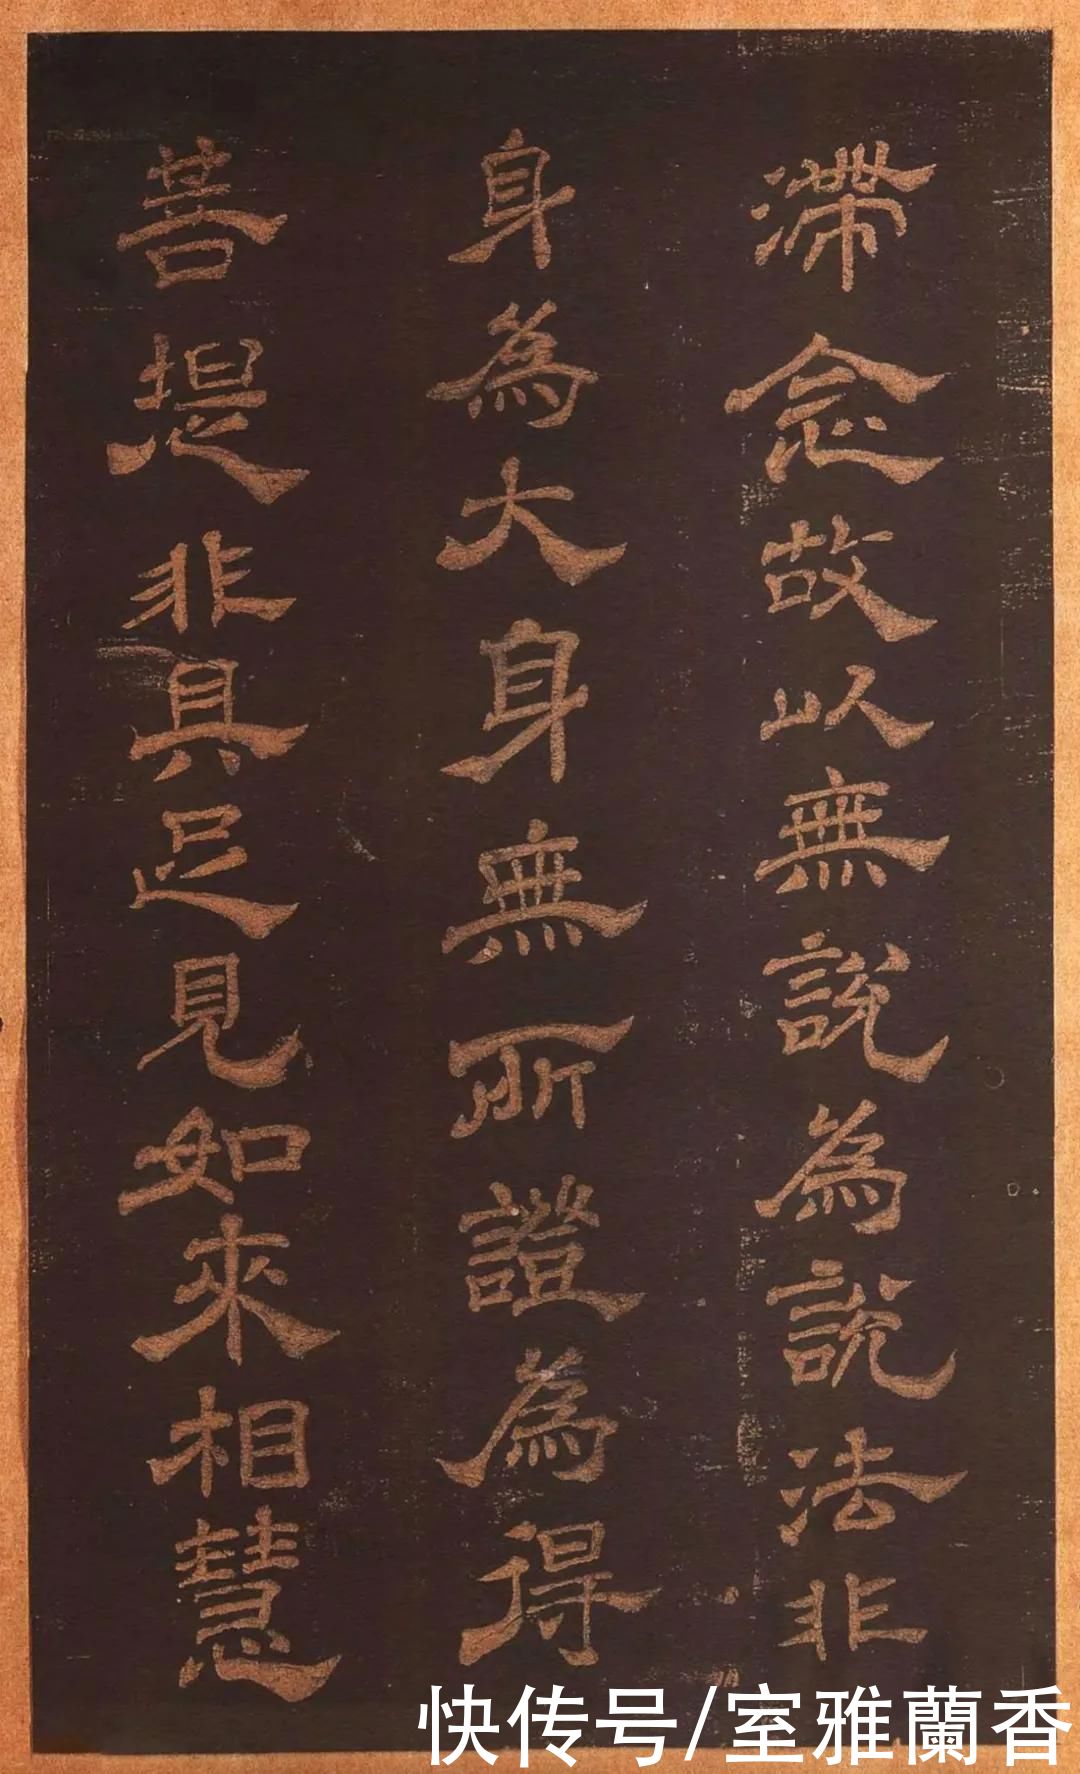 滯念故以無說為說法非
身為大身無所證為得
菩提非具足見如來相慧
快传号/室雅蘭香